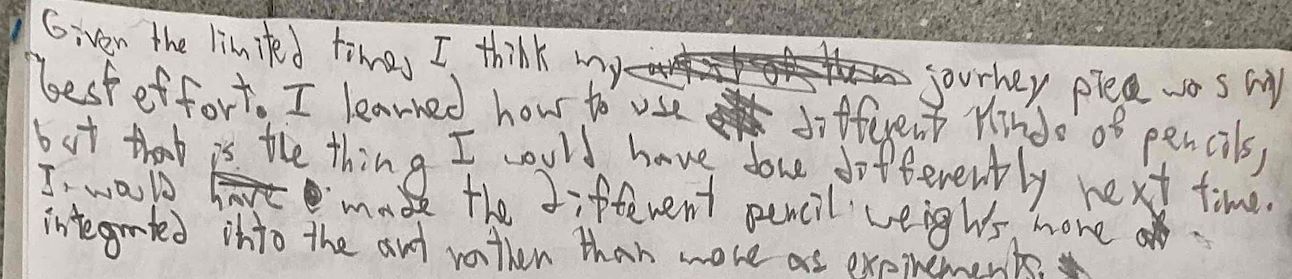 Given the limited times I think my journey piece was my
best effort. I learned how to use different kinds of pencils,
but that is the thing I would have done differently next time.
I would made the different pencil weighs more
integrated into the art rather than more as expirements.